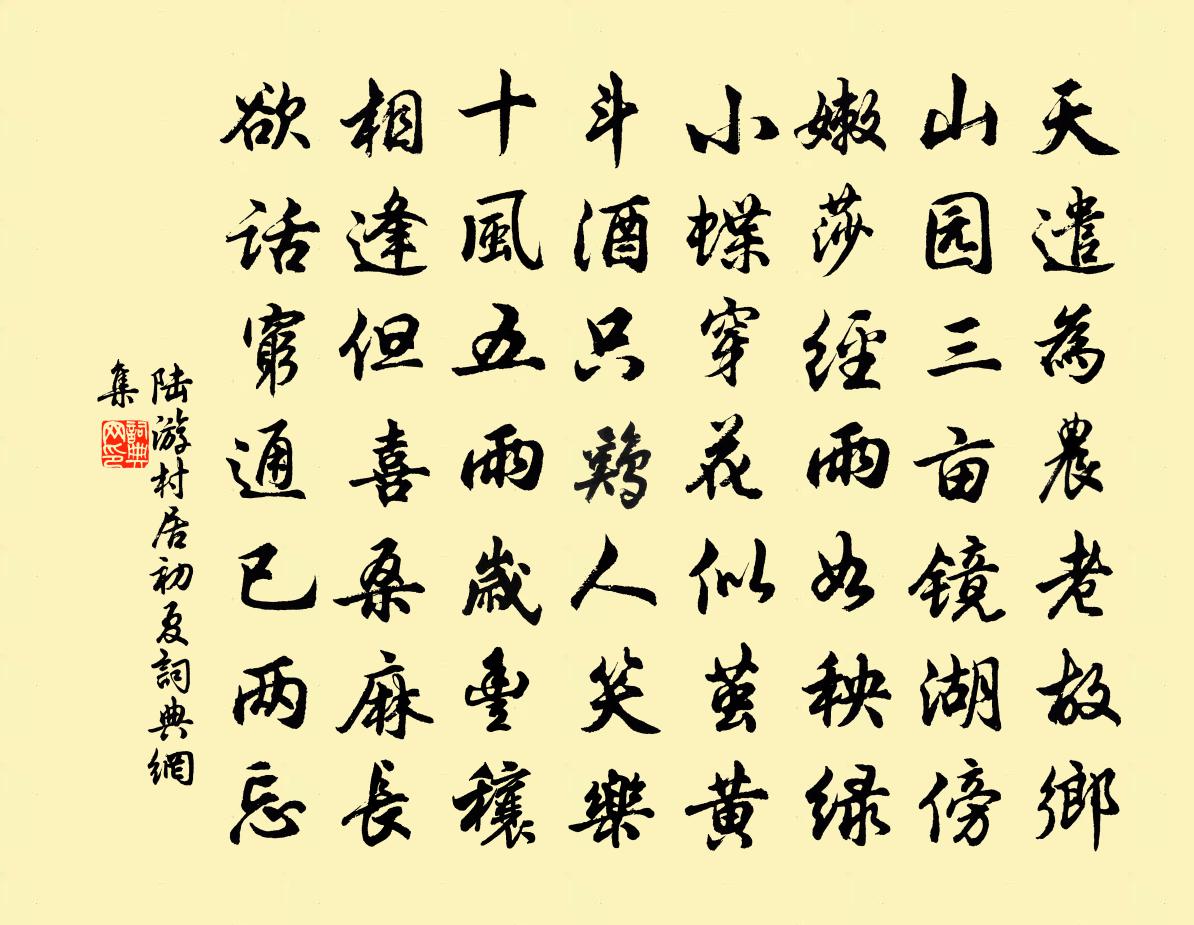 天遣為農老故鄉
山园三亩镜湖傍
嫩莎經雨如秧绿
小蝶穿花似茧黄
斗酒只鷄人笑樂
十風五雨歲豊穰
相逢但喜桑麻長
欲话窮通已两忘
陆游村居初夏詞典網
集
詞典
网印